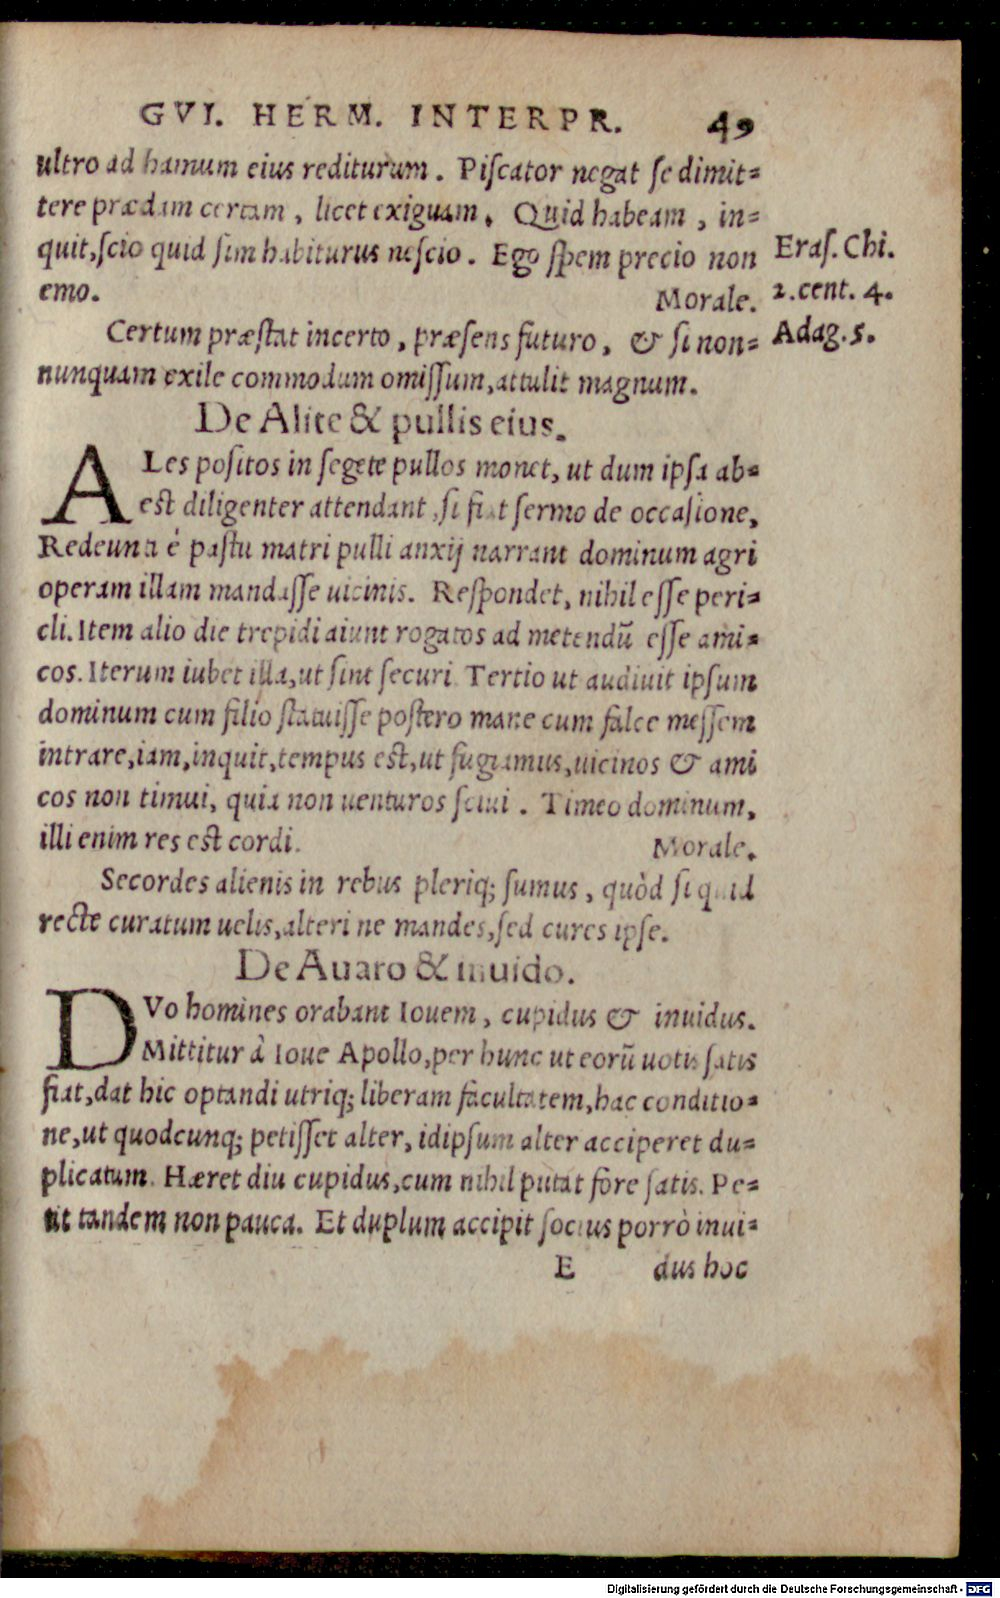 GVI. HERM. INTERPR. 49
ultro ad hamum eius rediturum. Piſcator negat ſe dimit=
tere prædam certam, licet exiguam. Quid habeam, in=
quit, ſcio quid ſim habiturus neſcio. Ego ſpem precio non
emo. Morale.
Eraſ. Chi.
2. cent. 4.
Adag. 5.
Certum præſtat incerto, præſens futuro, & ſi non=
nunquam exile commodum omiſſum, attulit magnum.
De Alite & pullis eius.
ALes poſitos in ſegete pullos monet, ut dum ipſa ab=
eſt diligenter attendant, ſi fiat ſermo de occaſione,
Redeunti é paſtu matri pulli anxij narrant dominum agri
operam illam mandaſſe uicinis. Reſpondet, nihil eſſe peri=
cli. Item alio die trepidi aiunt rogatos ad metendū eſſe ami=
cos. Iterum iubet illa, ut ſint ſecuri. Tertio ut audiuit ipſum
dominum cum filio ſtatuiſſe poſtero mane cum falce meſſem
intrare, iam, inquit, tempus eſt, ut fugiamus, uicinos & ami
cos non timui, quia non uenturos ſciui. Timeo dominum,
illi enim res eſt cordi. Morale.
Secordes alienis in rebus pleriq; ſumus, quòd ſi quid
recte curatum uelis, alteri ne mandes, ſed cures ipſe.
De Auaro & inuido.
DVo homines orabant Iouem, cupidus & inuidus.
Mittitur à Ioue Apollo, per hunc ut eorū uotis ſatis
fiat, dat hic optandi utriq; liberam facultatem, hac conditio=
ne, ut quodcunq; petiſſet alter, idipſum alter acciperet du=
plicatum. Hæret diu cupidus, cum nihil putat fore ſatis. Pe=
tit tandem non pauca. Et duplum accipit ſocius porrò inui=
E dus hoc
Digitalisierung gefördert durch die Deutsche Forschungsgemeinschaft - DFG